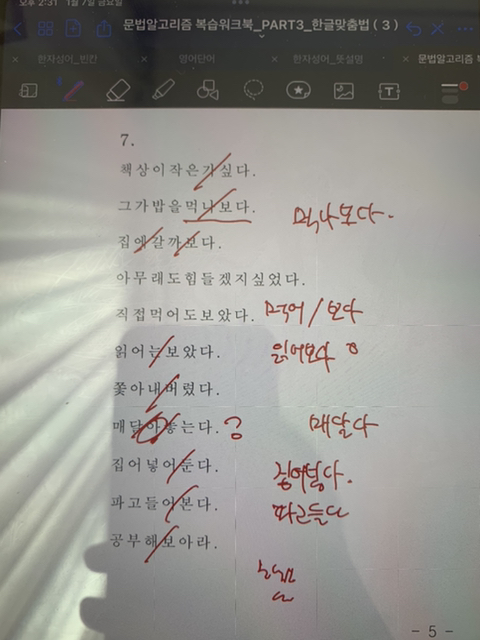 오후 2:31 1월 7일 금요일
문법알고리즘 복습워크북_PART3_한글맞춤법 ( 3 )
한자성어_빈칸 영어단어 한자성어_뜻설명 문법알고리즘 복
7.
책상이작은가싶다.
그가밥을먹나보다. 먹나보다.
집에갈까보다.
아무래도힘들겠지싶었다.
직접먹어도보았다. 먹어/보다
읽어는보았다. 읽어보다
쫓아내버렸다.
매달아놓는다. ? 매달다
집어넣어둔다. 집어넣다.
파고들어본다. 파고들다
공부해보아라.
- 5 -